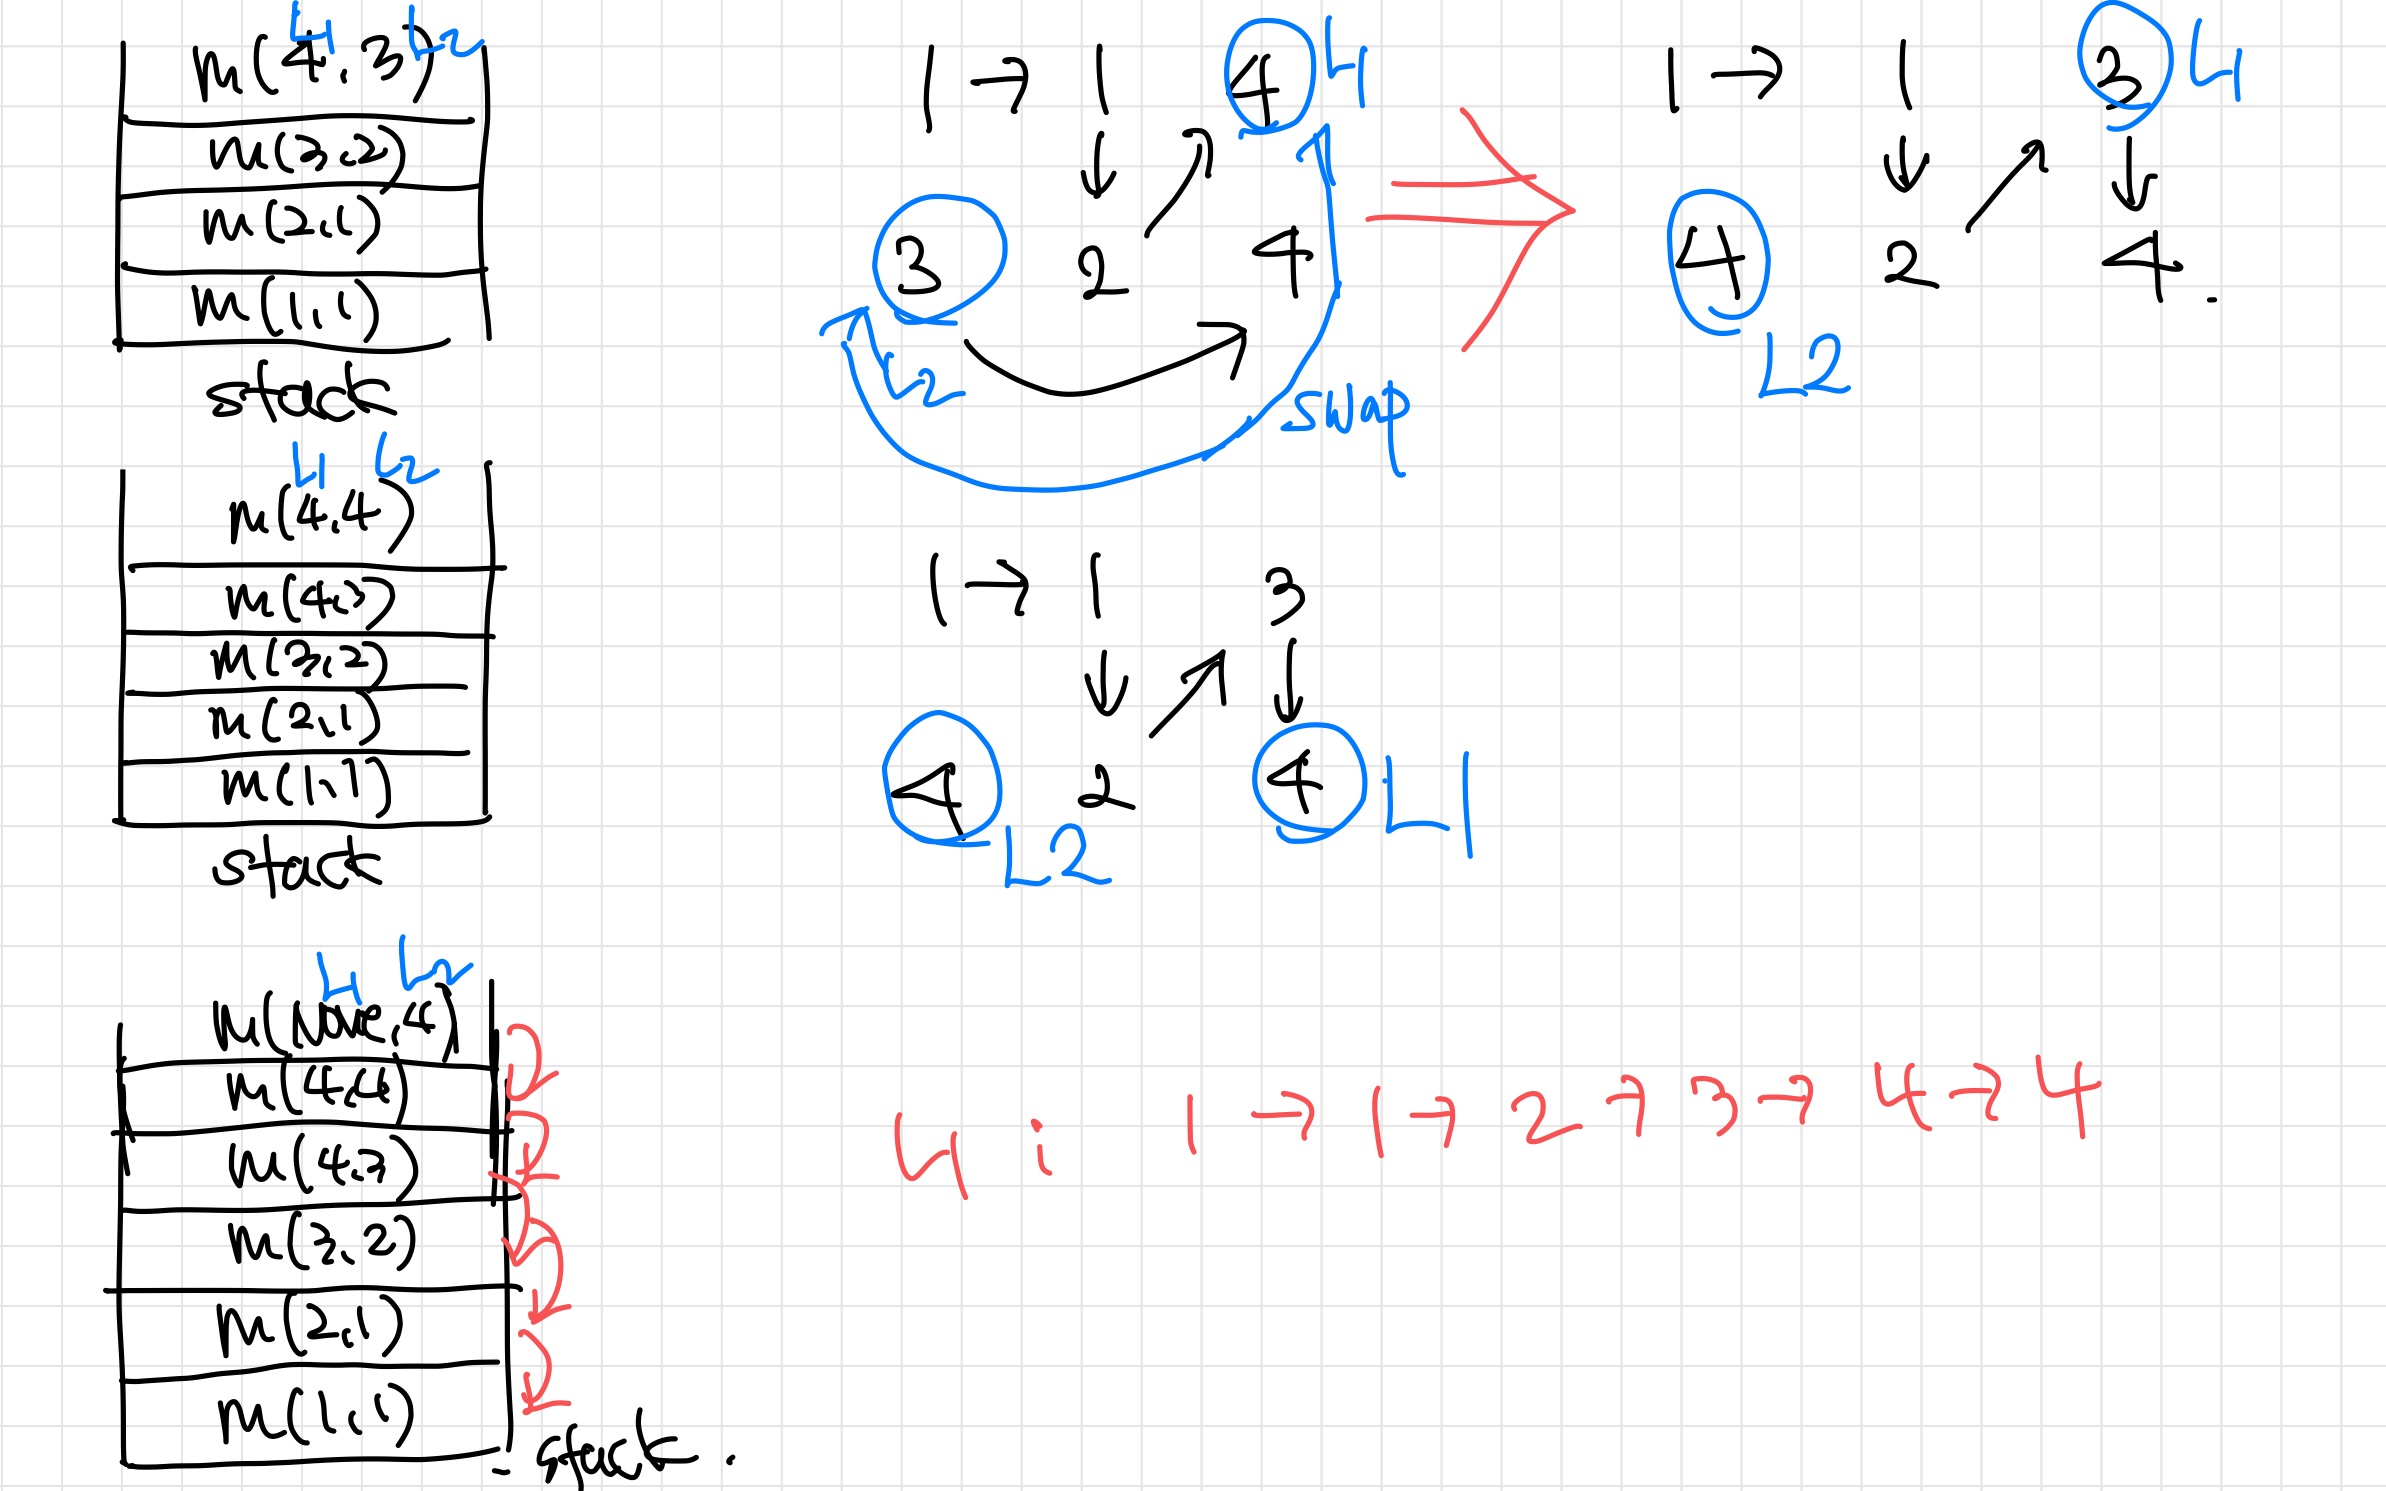 L1 L2
m(4,3)
m(3,2)
m(2,1)
m(1,1)
stack
1 → 1 4 L1
3 2 4
L2 swap
1 → 1 3 L1
4 2 4
L2
L1 L2
m(4,4)
m(4,3)
m(3,2)
m(2,1)
m(1,1)
stack
1 → 1 3
4 2 4 L1
L2
L1 L2
m(None,4)
m(4,4)
m(4,3)
m(3,2)
m(2,1)
m(1,1)
stack.
L1: 1 → 1 → 2 → 3 → 4 → 4